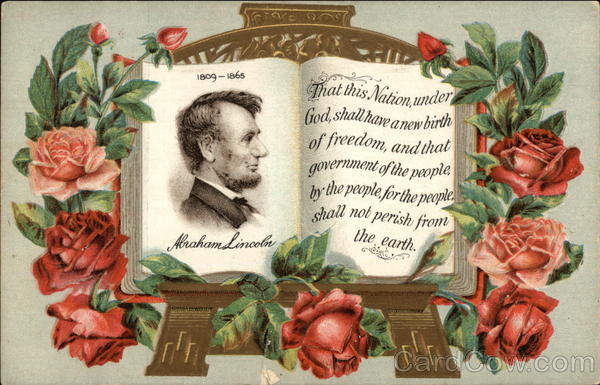 1809-1865
Abraham Lincoln
That this Nation, under
God, shall have a new birth
of freedom, and that
government of the people,
by the people, for the people,
shall not perish from
the earth.
CardCow.com